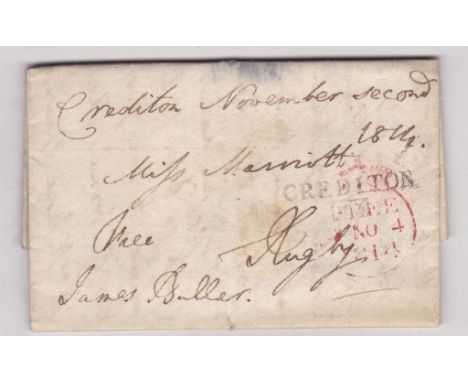 Crediton November second
1814.
Miss Marriott
CREDITON
Free
FREE
NO 4
Rugby
James Buller.